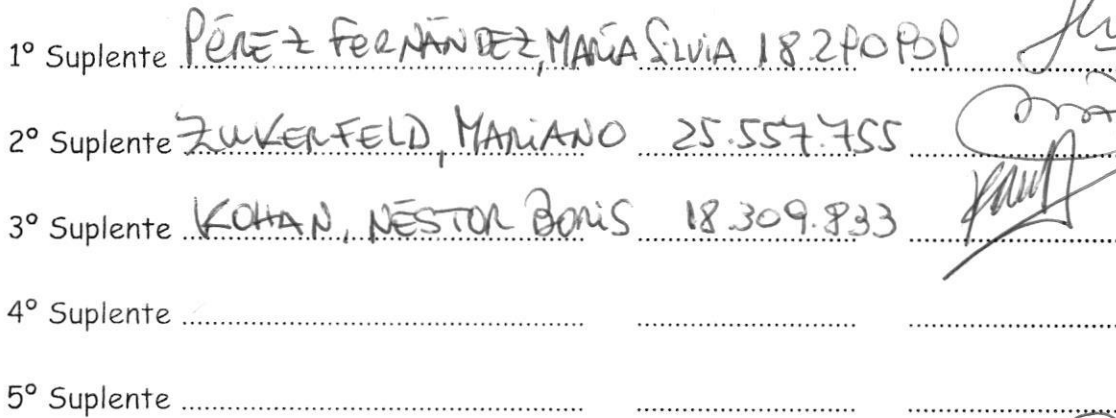 1º Suplente PÉREZ FERNÁNDEZ, MARÍA SILVIA 18 290 909
2º Suplente ZUKERFELD, MARIANO 25.557.755
3º Suplente KOHAN, NÉSTOR BORIS 18.309.833
4º Suplente
5º Suplente